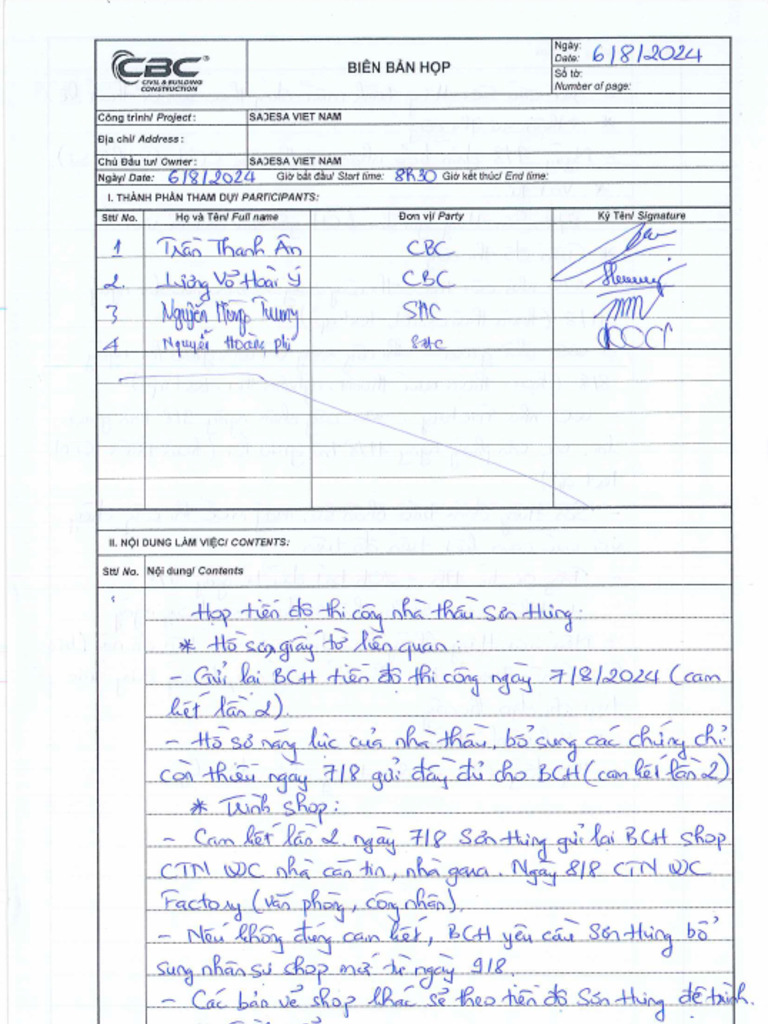 CBC®
CIVIL & BUILDING
CONSTRUCTION
BIÊN BẢN HỌP
Ngày:
Date: 6/8/2024
Số tờ:
Number of page:
Công trình/ Project: SADESA VIET NAM
Địa chỉ/ Address:
Chủ Đầu tư/ Owner: SADESA VIET NAM
Ngày/ Date: 6/8/2024 Giờ bắt đầu/ Start time: 8H30 Giờ kết thúc/ End time:
I. THÀNH PHẦN THAM DỰ/ PARTICIPANTS:
Stt/ No. Họ và Tên/ Full name Đơn vị/ Party Ký Tên/ Signature
1 Trần Thanh Ân CBC
2. Lương Võ Hoài Ý CBC
3 Nguyễn SHC
4 Nguyễn Hoàng Phi SHC
II. NỘI DUNG LÀM VIỆC/ CONTENTS:
Stt/ No. Nội dung/ Contents
Họp tiến độ thi công nhà thầu Sơn Hưng:
* Hồ sơ, giấy tờ liên quan
- Gửi lại BCH tiến độ thi công ngày 7/8/2024 (cam
kết lần 2).
- Hồ sơ năng lực của nhà thầu, bổ sung các chứng chỉ
còn thiếu ngày 7/8 gửi đầy đủ cho BCH (cam kết lần 2)
* Trình shop:
- Cam kết lần 2. ngày 7/8 Sơn Hưng gửi lại BCH shop
CTN WC nhà căn tin, nhà gara. Ngày 8/8 CTN WC
Factory (văn phòng, công nhân).
- Nếu không đúng cam kết, BCH yêu cầu Sơn Hưng bổ
sung nhân sự shop mới từ ngày 9/8.
- Các bản vẽ shop khác sẽ theo tiến độ Sơn Hưng đệ trình.